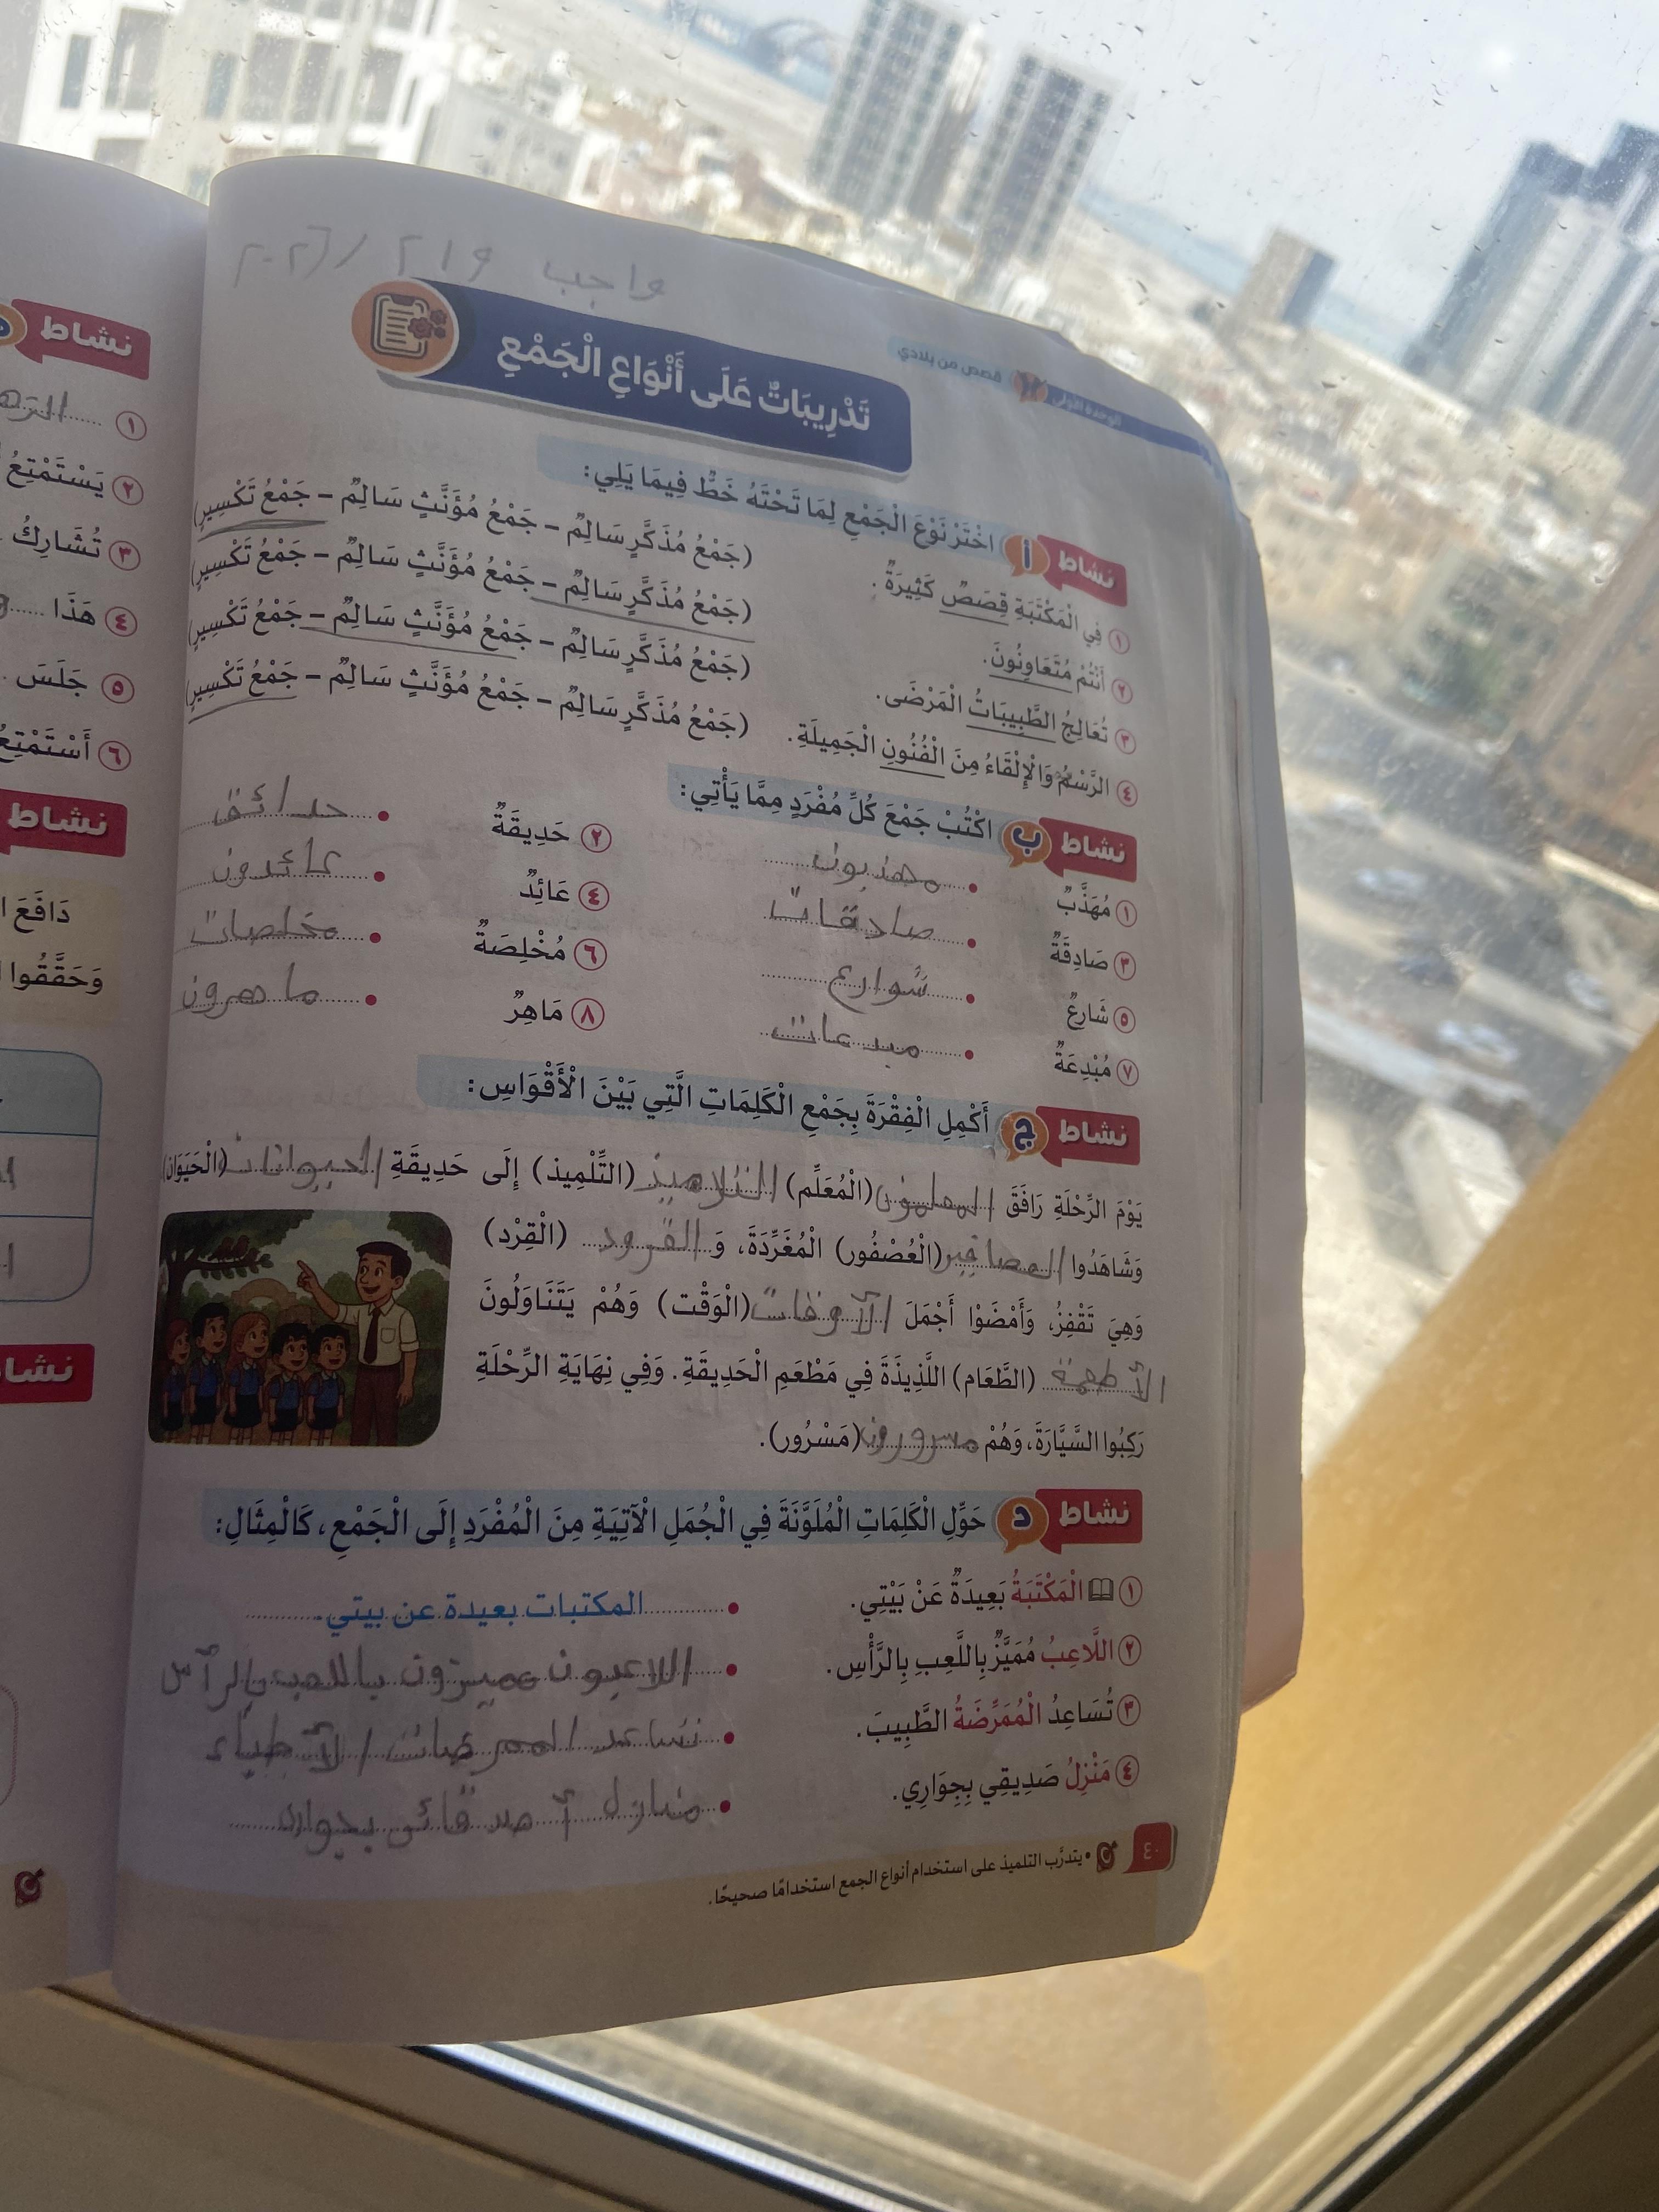 واجب ٢١٩ /٢٠٢٦
الوحدة الأولى قصص من بلادي
تَدْرِيبَاتٌ عَلَى أَنْوَاعِ الْجَمْعِ
نشاط أ اخْتَرْ نَوْعَ الْجَمْعِ لِمَا تَحْتَهُ خَطٌّ فِيمَا يَلِي:
١ فِي الْمَكْتَبَةِ قِصَصٌ كَثِيرَةٌ. (جَمْعُ مُذَكَّرٍ سَالِمٌ – جَمْعُ مُؤَنَّثٍ سَالِمٌ – جَمْعُ تَكْسِيرٍ)
٢ أَنْتُمْ مُتَعَاوِنُونَ. (جَمْعُ مُذَكَّرٍ سَالِمٌ – جَمْعُ مُؤَنَّثٍ سَالِمٌ – جَمْعُ تَكْسِيرٍ)
٣ تُعَالِجُ الطَّبِيبَاتُ الْمَرْضَى. (جَمْعُ مُذَكَّرٍ سَالِمٌ – جَمْعُ مُؤَنَّثٍ سَالِمٌ – جَمْعُ تَكْسِيرٍ)
٤ الرَّسْمُ وَالْإِلْقَاءُ مِنَ الْفُنُونِ الْجَمِيلَةِ. (جَمْعُ مُذَكَّرٍ سَالِمٌ – جَمْعُ مُؤَنَّثٍ سَالِمٌ – جَمْعُ تَكْسِيرٍ)
نشاط ب اكْتُبْ جَمْعَ كُلِّ مُفْرَدٍ مِمَّا يَأْتِي:
١ مُهَذَّبٌ مهذبون ٢ حَدِيقَةٌ حدائق
٣ صَادِقَةٌ صادقات ٤ عَائِدٌ عائدون
٥ شَارِعٌ شوارع ٦ مُخْلِصَةٌ مخلصات
٧ مُبْدِعَةٌ مبدعات ٨ مَاهِرٌ ماهرون
نشاط ج أَكْمِلِ الْفِقْرَةَ بِجَمْعِ الْكَلِمَاتِ الَّتِي بَيْنَ الْأَقْوَاسِ:
يَوْمَ الرِّحْلَةِ رَافَقَ المعلمون (الْمُعَلِّم) التلاميذ (التِّلْمِيذ) إِلَى حَدِيقَةِ الحيوانات (الْحَيَوَان)
وَشَاهَدُوا العصافير (الْعُصْفُور) الْمُغَرِّدَةَ، وَ القرود (الْقِرْد)
وَهِيَ تَقْفِزُ، وَأَمْضَوْا أَجْمَلَ الأوقات (الْوَقْت) وَهُمْ يَتَنَاوَلُونَ
الأطعمة (الطَّعَام) اللَّذِيذَةَ فِي مَطْعَمِ الْحَدِيقَةِ. وَفِي نِهَايَةِ الرِّحْلَةِ
رَكِبُوا السَّيَّارَةَ، وَهُمْ مسرورون (مَسْرُور).
نشاط د حَوِّلِ الْكَلِمَاتِ الْمُلَوَّنَةَ فِي الْجُمَلِ الْآتِيَةِ مِنَ الْمُفْرَدِ إِلَى الْجَمْعِ، كَالْمِثَالِ:
١ الْمَكْتَبَةُ بَعِيدَةٌ عَنْ بَيْتِي. المكتبات بعيدة عن بيتي.
٢ اللَّاعِبُ مُمَيَّزٌ بِاللَّعِبِ بِالرَّأْسِ. اللاعبون مميزون باللعب بالرأس
٣ تُسَاعِدُ الْمُمَرِّضَةُ الطَّبِيبَ. تساعد الممرضات الأطباء
٤ مَنْزِلُ صَدِيقِي بِجِوَارِي. منازل أصدقائي
٤٠ • يتدرَّب التلميذ على استخدام أنواع الجمع استخدامًا صحيحًا.
نشاط
١
٢ يَسْتَمْتِعُ
٣ تُشَارِكُ
٤ هَذَا
٥ جَلَسَ
٦ أَسْتَمْتِعُ
نشاط
دَافَعَ
وَحَقَّقُوا
نشاط